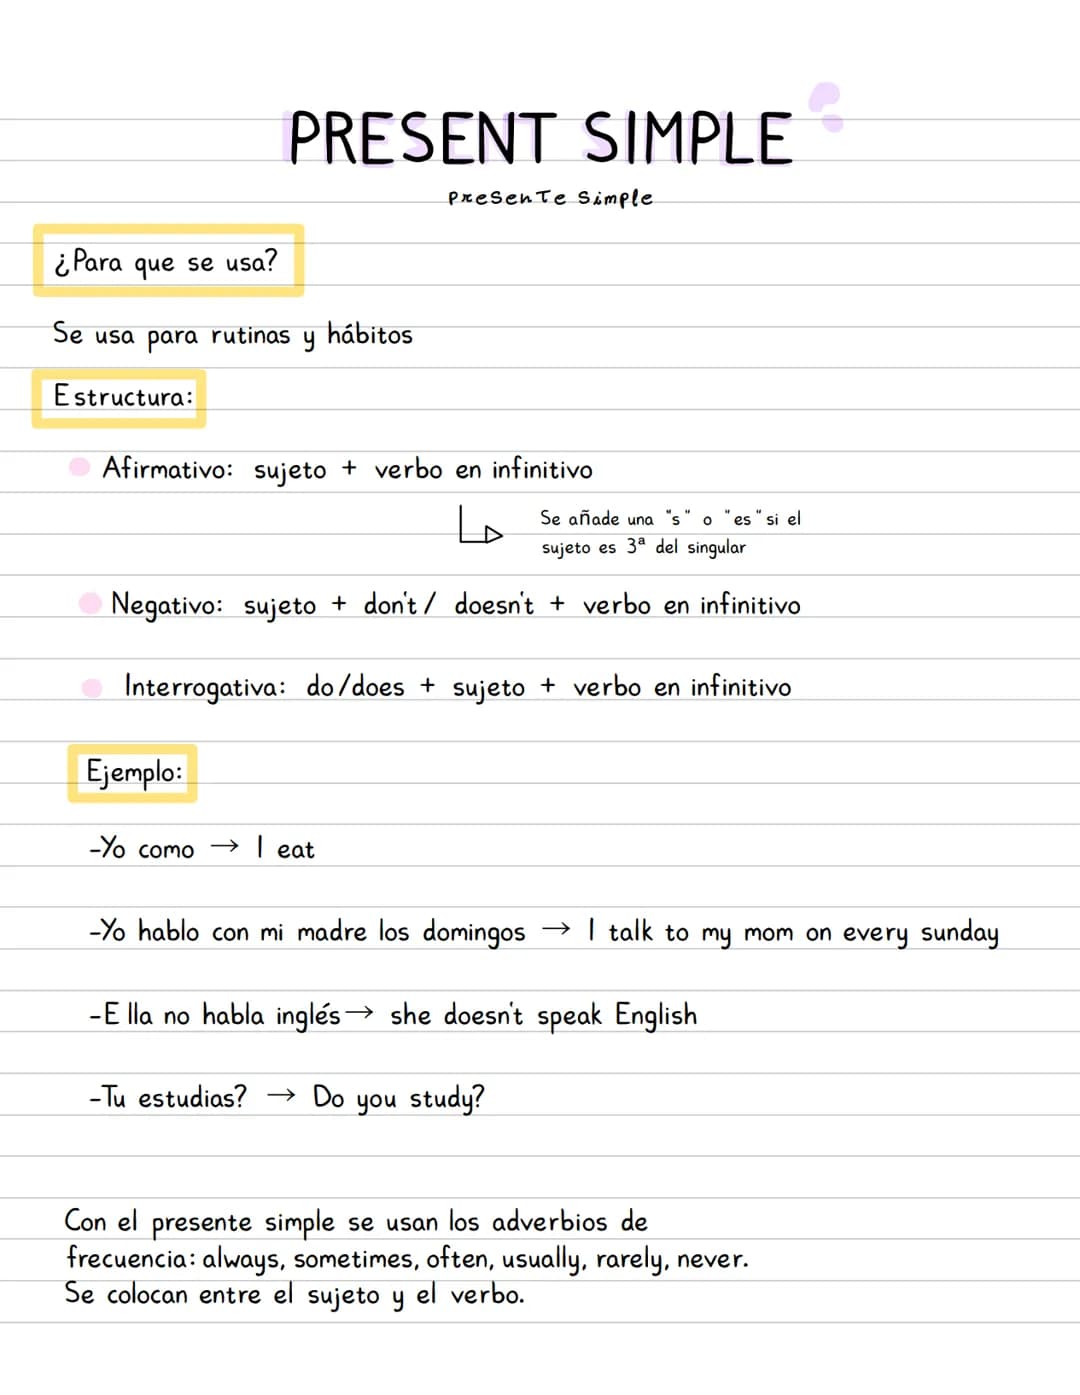 PRESENT SIMPLE
Presente Simple
¿Para que se usa?
Se usa para rutinas y hábitos
Estructura:
Afirmativo: sujeto + verbo en infinitivo
Se añade una "s" o "es" si el
sujeto es 3ª del singular
Negativo: sujeto + don't / doesn't + verbo en infinitivo
Interrogativa: do/does + sujeto + verbo en infinitivo
Ejemplo:
-Yo como → I eat
-Yo hablo con mi madre los domingos → I talk to my mom on every sunday
-Ella no habla inglés → she doesn't speak English
-Tu estudias? → Do you study?
Con el presente simple se usan los adverbios de
frecuencia: always, sometimes, often, usually, rarely, never.
Se colocan entre el sujeto y el verbo.